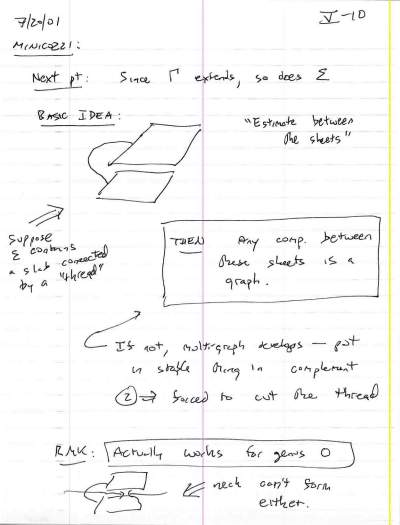 7/20/01
V-10
MINICOZZI:
Next pt: Since Γ extends, so does Σ
BASIC IDEA:
"Estimate between
the sheets"
Suppose
Σ contains
a slab connected
by a "thread"
THEN Any comp. between
these sheets is a
graph.
If not, multigraph develops — put
in stable thing in complement
② ⇒ forced to cut the thread
RMK: Actually works for genus 0
neck can't form
either.